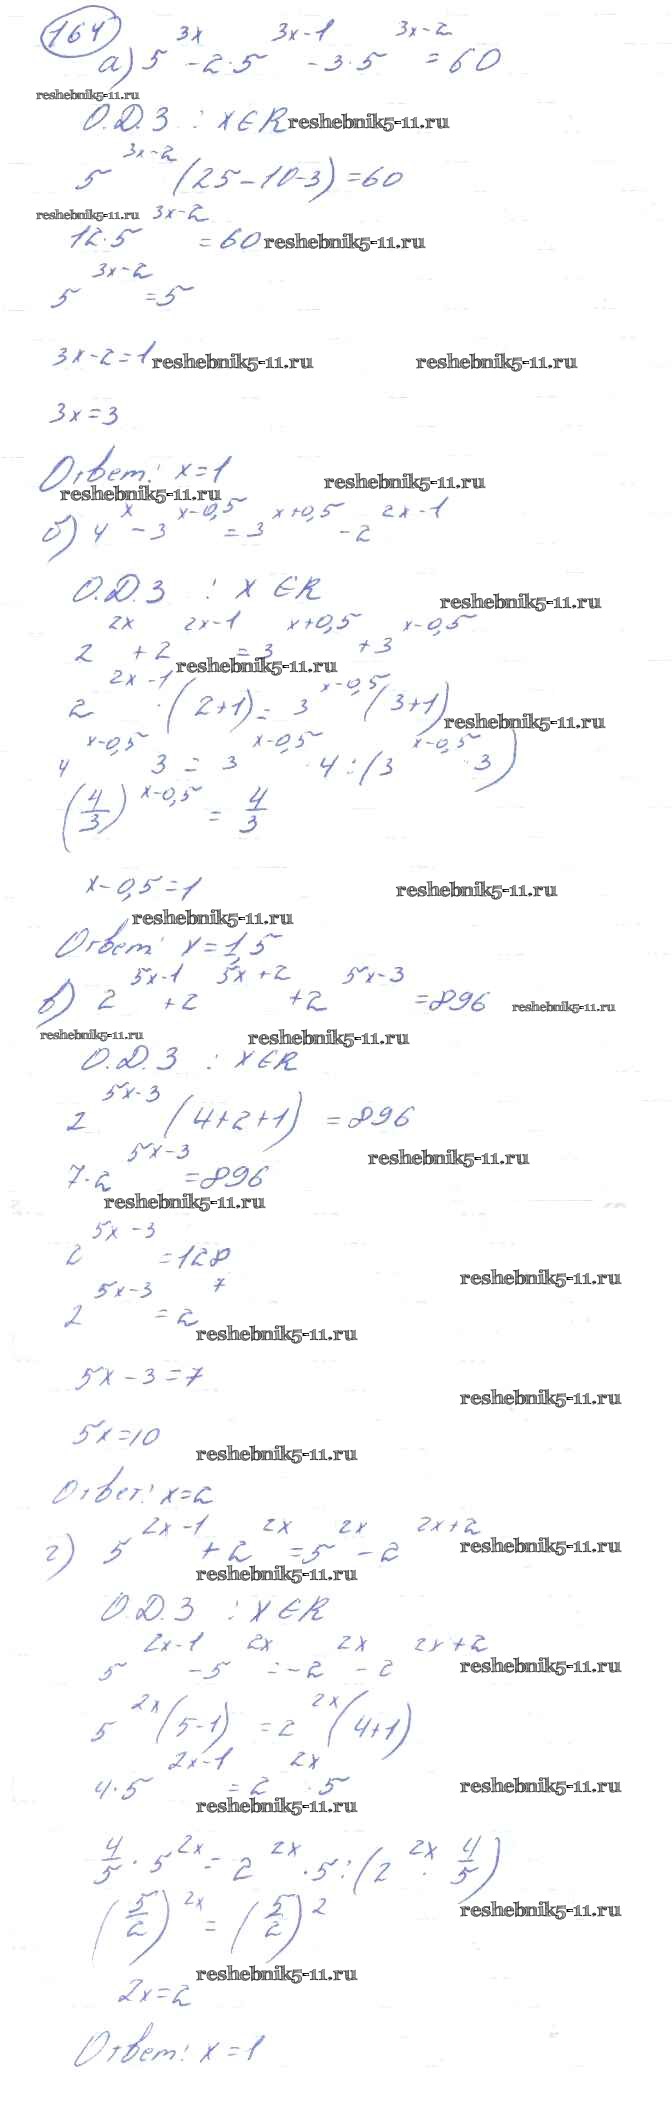 164
а) 5^{3x} - 2·5^{3x-1} - 3·5^{3x-2} = 60
reshebnik5-11.ru
О.Д.З : x∈R reshebnik5-11.ru
5^{3x-2} (25-10-3) = 60
reshebnik5-11.ru
12·5^{3x-2} = 60 reshebnik5-11.ru
5^{3x-2} = 5
3x-2=1 reshebnik5-11.ru reshebnik5-11.ru
3x=3
Ответ: x=1 reshebnik5-11.ru
reshebnik5-11.ru
б) 4^{x} - 3^{x-0,5} = 3^{x+0,5} - 2^{2x-1}
О.Д.З : x∈R reshebnik5-11.ru
2^{2x} + 2^{2x-1} = 3^{x+0,5} + 3^{x-0,5}
reshebnik5-11.ru
2^{2x-1} ·(2+1) = 3^{x-0,5} (3+1) reshebnik5-11.ru
4^{x-0,5} 3 = 3^{x-0,5} · 4 :(3^{x-0,5} · 3)
(4/3)^{x-0,5} = 4/3
x-0,5=1 reshebnik5-11.ru
reshebnik5-11.ru
Ответ: x=1,5
в) 2^{5x-1} + 2^{5x+2} + 2^{5x-3} = 896 reshebnik5-11.ru
reshebnik5-11.ru reshebnik5-11.ru
О.Д.З : x∈R
2^{5x-3} (4+2+1) = 896
reshebnik5-11.ru
7·2^{5x-3} = 896
reshebnik5-11.ru
2^{5x-3} = 128 reshebnik5-11.ru
2^{5x-3} = 2^{7}
reshebnik5-11.ru
5x-3=7 reshebnik5-11.ru
5x=10 reshebnik5-11.ru
Ответ: x=2
г) 5^{2x-1} + 2^{2x} = 5^{2x} - 2^{2x+2} reshebnik5-11.ru
reshebnik5-11.ru
О.Д.З : x∈R
5^{2x-1} - 5^{2x} = -2^{2x} - 2^{2x+2} reshebnik5-11.ru
5^{2x} (5-1) = 2^{2x} (4+1)
4·5^{2x-1} = 2^{2x} · 5 reshebnik5-11.ru
reshebnik5-11.ru
4/5 · 5^{2x} = 2^{2x} · 5 :(2^{2x} · 4/5)
(5/2)^{2x} = (5/2)^{2} reshebnik5-11.ru
reshebnik5-11.ru
2x=2
Ответ: x=1